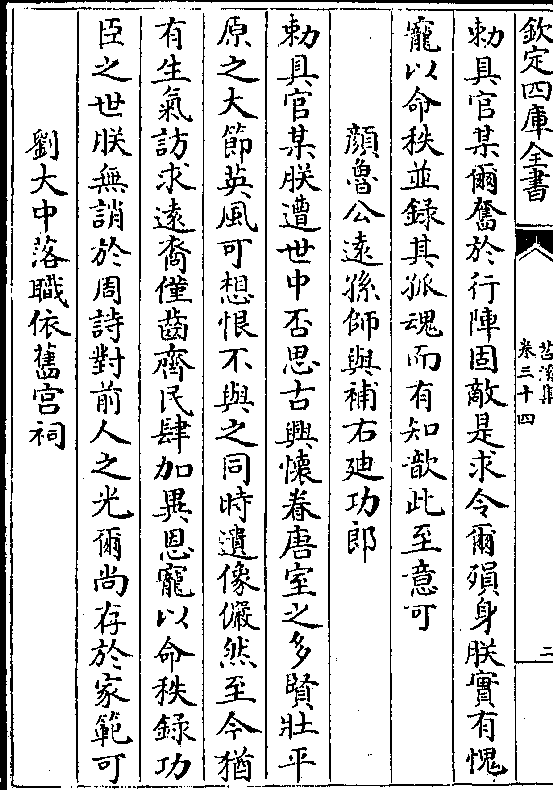 欽定四庫全書
苕溪集
卷三十四
二
勅具官某爾奮於行陣固敵是求令爾殞身朕實有愧
寵以命秩並録其孤魂而有知歆此至意可
顔魯公遠孫師與補右廸功郎
勅具官某朕遭世中否思古興懷眷唐室之多賢壯平
原之大節英風可想恨不與之同時遺像儼然至今猶
有生氣訪求遠裔僅齒齊民肆加異恩寵以命秩録功
臣之世朕無誚於周詩對前人之光爾尚存於家範可
劉大中落職依舊宫祠